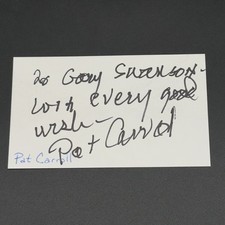 To Gary Swenson-
with every good
wish-
Pat Carroll
Pat Carroll